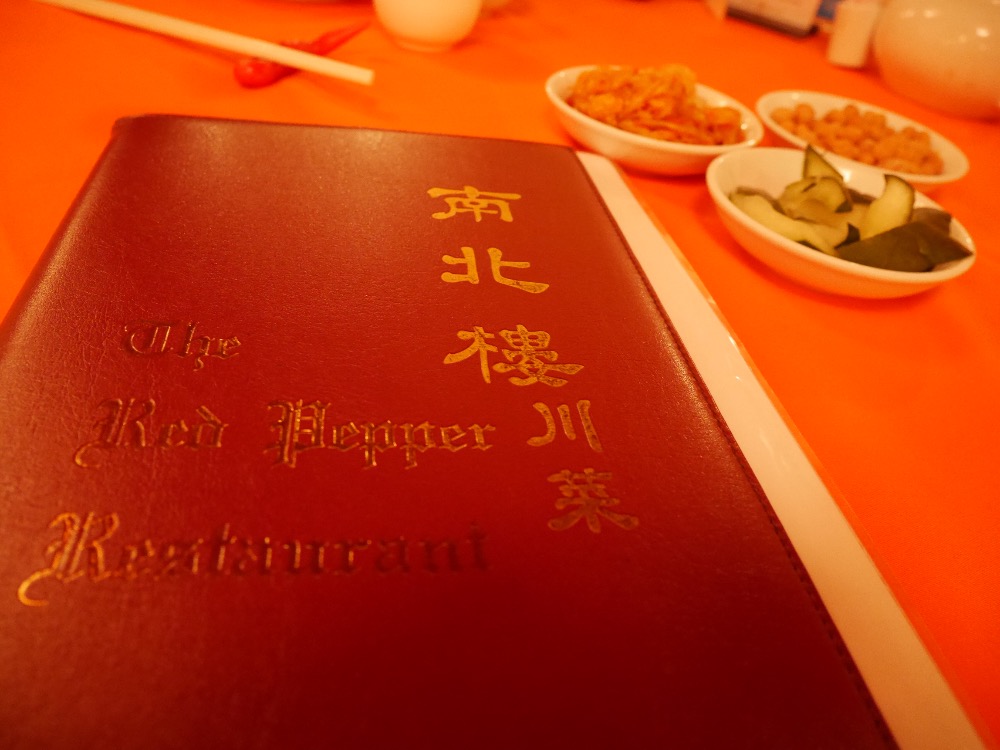 南北樓川菜
The
Red Pepper
Restaurant